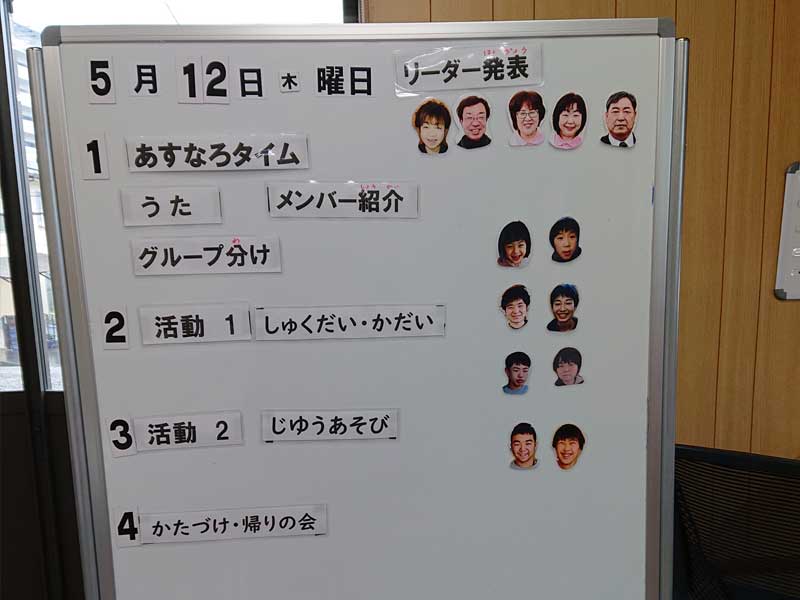 5月12日木曜日 リーダー発表
1 あすなろタイム
うた メンバー紹介
グループ分け
2 活動 1 しゅくだい・かだい
3 活動 2 じゆうあそび
4 かたづけ・帰りの会